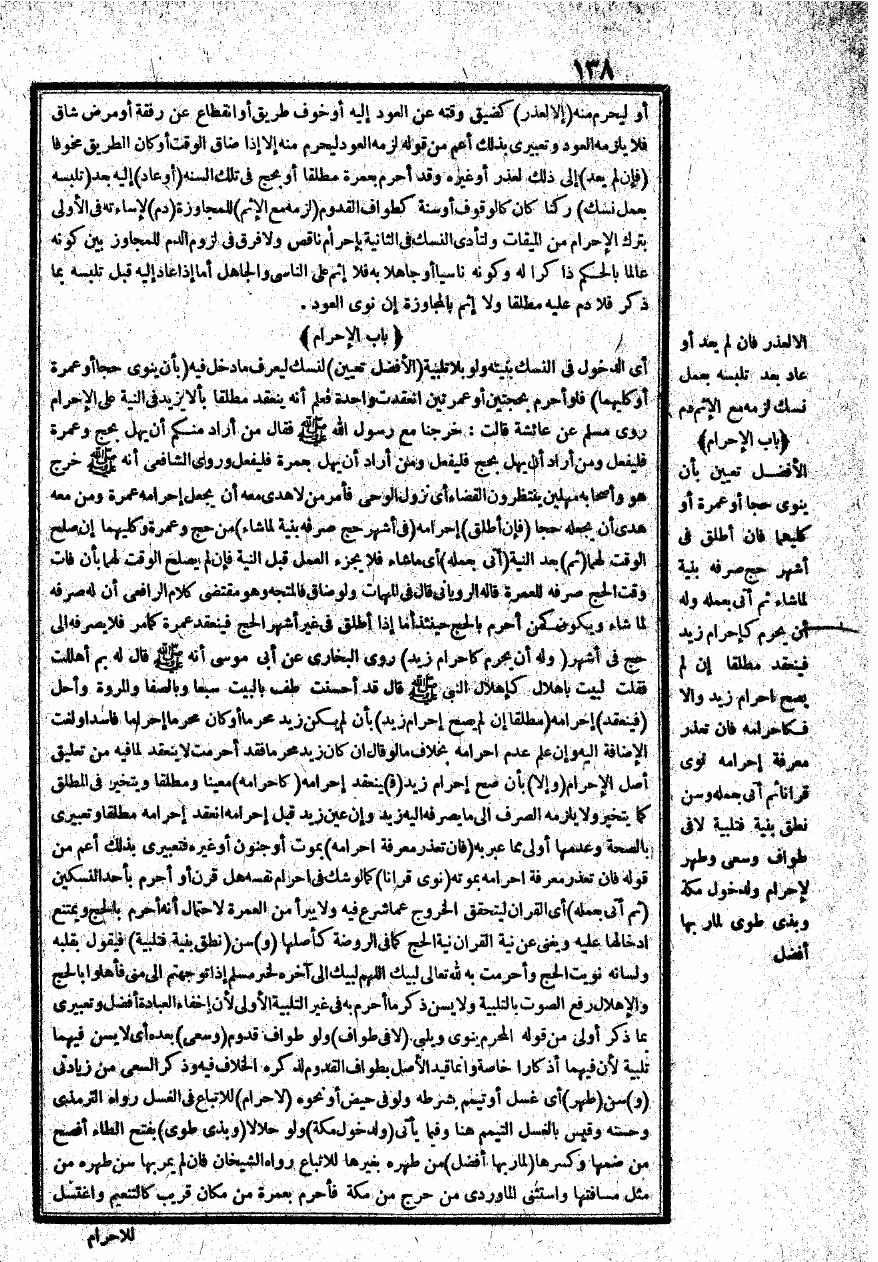 ١٣٨
أو ليحرم منه (إلا لعذر) كضيق وقته عن العود إليه أو خوف طريق أو انقطاع عن رفقة أو مرض شاق
فلا يلزمه العود وتعبيري بذلك أعم من قوله لزمه العود ليحرم منه إلا إذا ضاق الوقت أو كان الطريق مخوفا
(فإن لم يعد) إلى ذلك لعذر أو غيره وقد أحرم بعمرة مطلقا أو بحج في تلك السنه (أو عاد) إليه بعد (تلبسه
بعمل نسك) ركنا كان كالوقوف أو سنة كطواف القدوم (لزمه مع الإثم) للمجاوزة (دم) لإساءته في الأولى
بترك الإحرام من الميقات ولتأدى النسك في الثانية بإحرام ناقص ولا فرق في لزوم الدم للمجاوز بين كونه
عالما بالحكم ذا كرا له وكونه ناسيا أو جاهلا به فلا إثم على الناسى والجاهل أما إذا عاد إليه قبل تلبسه بما
ذكر فلا دم عليه مطلقا ولا إثم بالمجاوزة إن نوى العود .
﴿ باب الإحرام ﴾
أى الدخول فى النسك بنيته ولو بلا تلبية (الأفضل تعيين) لنسك ليعرف ما دخل فيه (بأن ينوى حجا أو عمرة
أو كليهما) فلو أحرم بحجتين أو عمرتين انعقدت واحدة فعلم أنه ينعقد مطلقا بألا يزيد في النية على الإحرام
روى مسلم عن عائشة قالت : خرجنا مع رسول الله ﷺ فقال من أراد منكم أن يهل بحج وعمرة
فليفعل ومن أراد أن يهل بحج فليفعل ومن أراد أن يهل بعمرة فليفعل وروى الشافعى أنه ﷺ خرج
هو وأصحابه مهلين ينتظرون القضاء أى نزول الوحى فأمر من لا هدى معه أن يجعل إحرامه عمرة ومن معه
هدى أن يجعله حجا (فإن أطلق) إحرامه (فى أشهر حج صرفه بنية لما شاء) من حج وعمرة وكليهما إن صلح
الوقت لهما (ثم) بعد النية (أتى بعمله) أى ما شاء فلا يجزء العمل قبل النية فإن لم يصلح الوقت لهما بأن فات
وقت الحج صرفه للعمرة قاله الرويانى قال فى المهمات ولو ضاق فالمتجه وهو مقتضى كلام الرافعى أن له صرفه
لما شاء ويكون كمن أحرم بالحج حينئذ أما إذا أطلق فى غير أشهر الحج فينعقد عمرة كما مر فلا يصرفه إلى
حج فى أشهر ( وله أن يحرم كاحرام زيد) روى البخارى عن أبى موسى أنه ﷺ قال له بم أهللت
فقلت لبيت باهلال كإهلال النبى ﷺ قال قد أحسنت طف بالبيت سبعا وبالصفا والمروة وأحل
(فينعقد) إحرامه (مطلقا إن لم يصح إحرام زيد) بأن لم يكن زيد محرما أو كان محرما إحراما فاسدا ولغت
الإضافة اليه وإن علم عدم احرامه بخلاف ما لو قال ان كان زيد محرما فقد أحرمت لا ينعقد لما فيه من تعليق
أصل الإحرام (وإلا) بأن صح إحرام زيد (ف) ينعقد إحرامه ( كاحرامه) معينا ومطلقا ويتخير فى المطلق
كما يتخير ولا يلزمه الصرف الى ما يصرفه اليه زيد وإن عين زيد قبل إحرامه انعقد إحرامه مطلقا وتعبيرى
بالصحة وعدمها أولى مما عبر به (فان تعذر معرفة احرامه) بموت أو جنون أو غيره فتعبيرى بذلك أعم من
قوله فان تعذر معرفة احرامه بموته (نوى قرانا) كما لو شك فى احرام نفسه هل قرن أو أحرم بأحد النسكين
(ثم أتى بعمله) أى القران ليتحقق الخروج عما شرع فيه ولا يبرأ من العمرة لاحتمال أنه أحرم بالحج ويمتنع
ادخالها عليه ويغنى عن نية القران نية الحج كما فى الروضة كأصلها (و) سن (نطق بنية فتلبية) فيقول بقلبه
ولسانه نويت الحج وأحرمت به لله تعالى لبيك اللهم لبيك الى آخره لخبر مسلم إذا توجهتم الى منى فأهلوا بالحج
والإهلال رفع الصوت بالتلبية ولا يسن ذكر ما أحرم به فى غير التلبية الأولى لأن إخفاء العبادة أفضل وتعبيرى
بما ذكر أولى من قوله المحرم ينوى ويلبى (لا فى طواف) ولو طواف قدوم (وسعى) بعده أى لا يسن فيهما
تلبية لأن فيهما أذكارا خاصة وإنما قيد الأصل بطواف القدوم لذكره الخلاف فيه وذكر السعى من زيادتى
(و) سن (طهر) أى غسل أو تيمم بشرطه ولو فى حيض أو نحوه (لاحرام) للاتباع فى الغسل رواه الترمذى
وحسنه وقيس بالغسل التيمم هنا وفيما يأتى (ولدخول مكة) ولو حلالا (وبذى طوى) بفتح الطاء أفصح
من ضمها وكسرها (لمار بها أفضل) من طهره بغيرها للاتباع رواه الشيخان فان لم يمر بها سن طهره من
مثل مسافتها واستثنى الماوردى من خرج من مكة فأحرم بعمرة من مكان قريب كالتنعيم واغتسل
للاحرام
الا لعذر فان لم يعد أو
عاد بعد تلبسه بعمل
نسك لزمه مع الإثم دم
﴿باب الإحرام﴾
الأفضل تعيين بأن
ينوى حجا أو عمرة أو
كليهما فان أطلق فى
أشهر حج صرفه بنية
لما شاء ثم أتى بعمله وله
أن يحرم كإحرام زيد
فينعقد مطلقا إن لم
يصح احرام زيد والا
فكاحرامه فان تعذر
معرفة إحرامه نوى
قرانا ثم أتى بعمله وسن
نطق بنية فتلبية لا فى
طواف وسعى وطهر
لإحرام ولدخول مكة
وبذى طوى لمار بها
أفضل